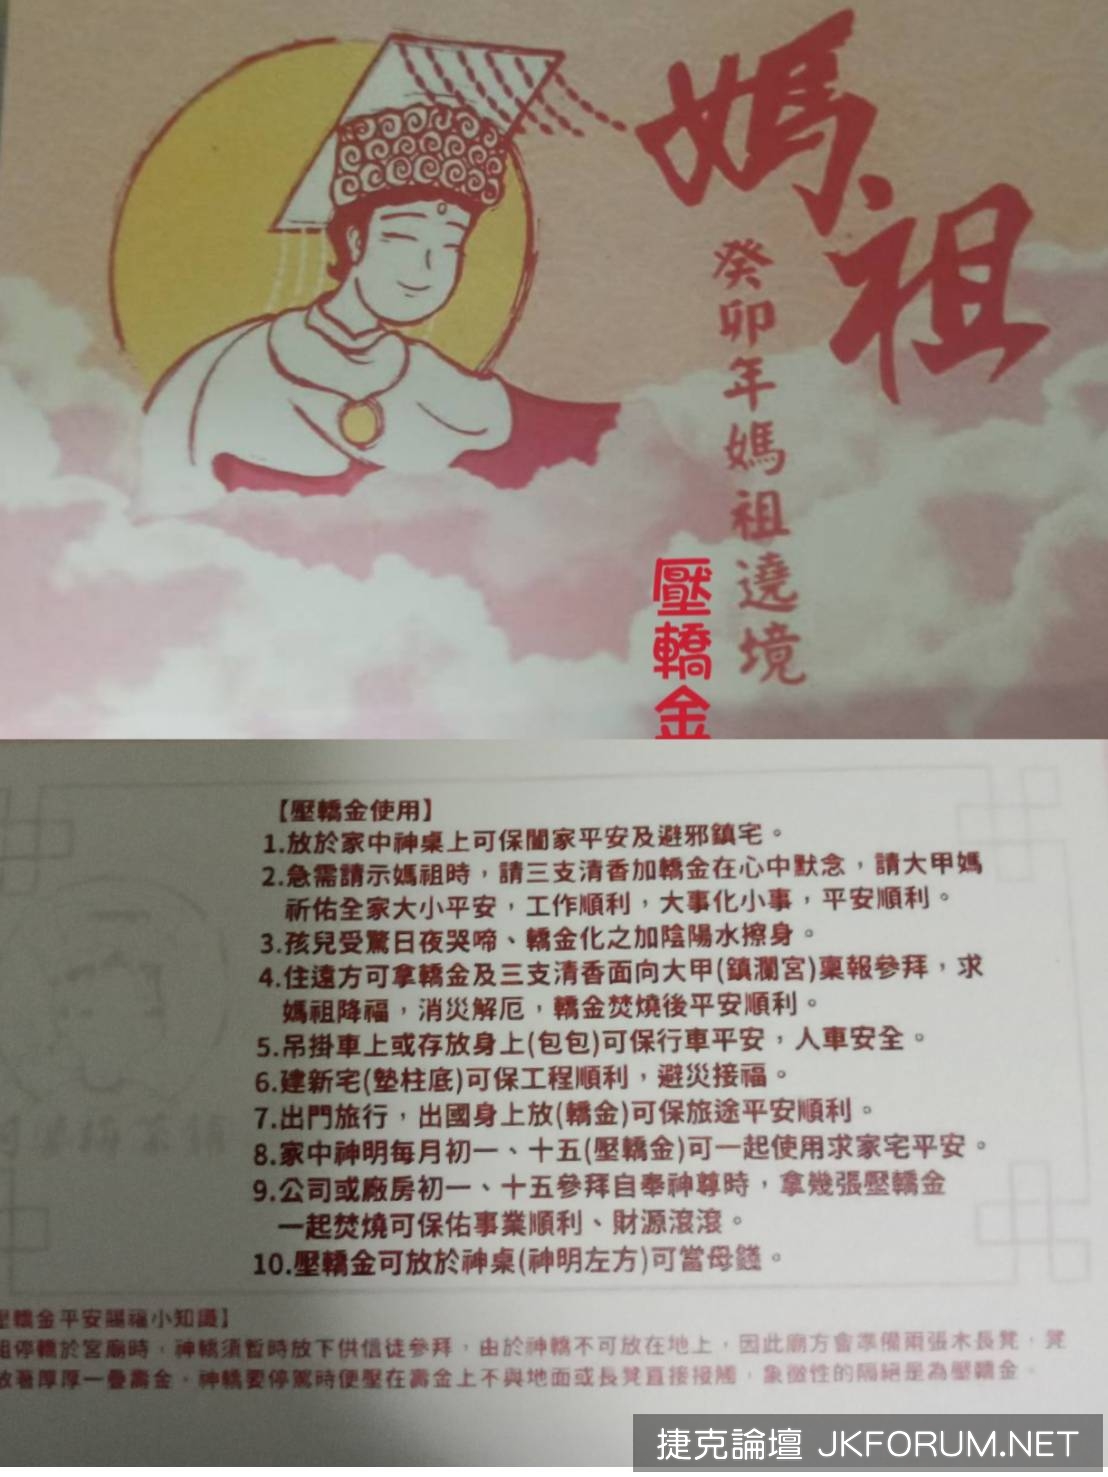 媽祖
癸卯年媽祖遶境
壓轎金
【壓轎金使用】
1.放於家中神桌上可保闔家平安及避邪鎮宅。
2.急需請示媽祖時，請三支清香加轎金在心中默念，請大甲媽
祈佑全家大小平安，工作順利，大事化小事，平安順利。
3.孩兒受驚日夜哭啼、轎金化之加陰陽水擦身。
4.住遠方可拿轎金及三支清香面向大甲(鎮瀾宮)稟報參拜，求
媽祖降福，消災解厄，轎金焚燒後平安順利。
5.吊掛車上或存放身上(包包)可保行車平安，人車安全。
6.建新宅(墊柱底)可保工程順利，避災接福。
7.出門旅行，出國身上放(轎金)可保旅途平安順利。
8.家中神明每月初一、十五(壓轎金)可一起使用求家宅平安。
9.公司或廠房初一、十五參拜自奉神尊時，拿幾張壓轎金
一起焚燒可保佑事業順利、財源滾滾。
10.壓轎金可放於神桌(神明左方)可當母錢。
壓轎金平安賜福小知識】
祖停轎於宮廟時，神轎須暫時放下供信徒參拜，由於神轎不可放在地上，因此廟方會準備兩張木長凳，凳
放著厚厚一疊壽金，神轎要停駕時便壓在壽金上不與地面或長凳直接接觸，象徵性的隔絕是為壓轎金。
捷克論壇 JKFORUM.NET